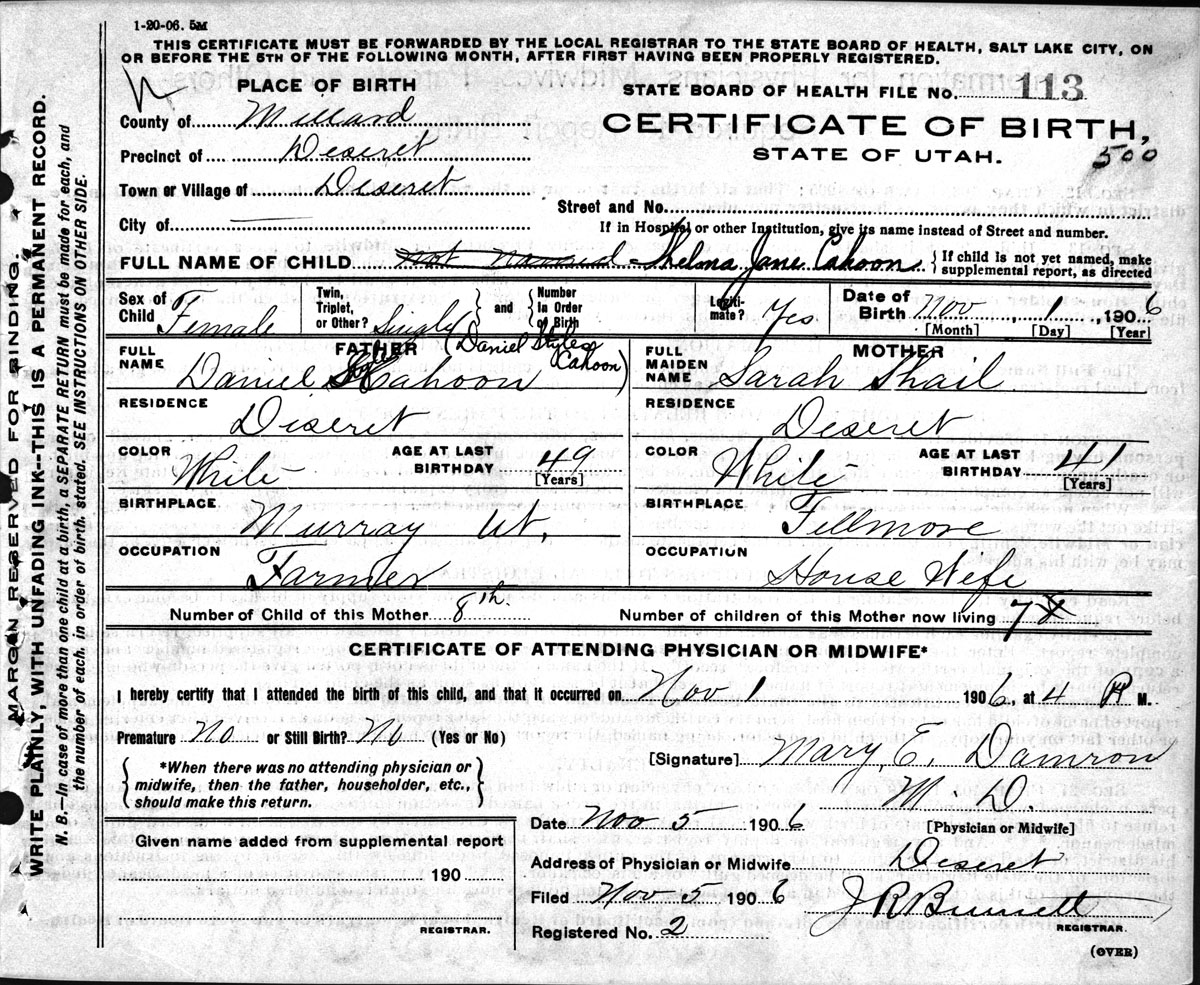 1-20-06. 5M
THIS CERTIFICATE MUST BE FORWARDED BY THE LOCAL REGISTRAR TO THE STATE BOARD OF HEALTH, SALT LAKE CITY, ON
OR BEFORE THE 5TH OF THE FOLLOWING MONTH, AFTER FIRST HAVING BEEN PROPERLY REGISTERED.
PLACE OF BIRTH
STATE BOARD OF HEALTH FILE NO. 113
County of Millard
CERTIFICATE OF BIRTH,
Precinct of Deseret
STATE OF UTAH.
500
Town or Village of Deseret
Street and No.
City of
If in Hospital or other Institution, give its name instead of Street and number.
FULL NAME OF CHILD not named Thelma Jane Cahoon { If child is not yet named, make supplemental report, as directed
Sex of Child Female
Twin, Triplet, or Other? Singly } and { Number In Order of Birth
Legitimate? Yes
Date of Birth Nov, 1, 1906
[Month] [Day] [Year]
FATHER
FULL NAME Daniel S Cahoon (Daniel Styles Cahoon)
MOTHER
FULL MAIDEN NAME Sarah Shail
RESIDENCE Deseret
RESIDENCE Deseret
COLOR White AGE AT LAST BIRTHDAY 49 [Years]
COLOR White AGE AT LAST BIRTHDAY 41 [Years]
BIRTHPLACE Murray Ut.
BIRTHPLACE Fillmore
OCCUPATION Farmer
OCCUPATION House Wife
Number of Child of this Mother 8th.
Number of children of this Mother now living 7
CERTIFICATE OF ATTENDING PHYSICIAN OR MIDWIFE*
I hereby certify that I attended the birth of this child, and that it occurred on Nov 1 1906, at 4 P M.
Premature No or Still Birth? No (Yes or No)
[Signature] Mary E. Damron
M. D.
[Physician or Midwife]
{ *When there was no attending physician or
midwife, then the father, householder, etc.,
should make this return. }
Date Nov 5 1906
Given name added from supplemental report
190
REGISTRAR.
Address of Physician or Midwife Deseret
Filed Nov 5 1906
J R Bennett
REGISTRAR.
Registered No. 2
(OVER)
MARGIN RESERVED FOR BINDING.
WRITE PLAINLY, WITH UNFADING INK—THIS IS A PERMANENT RECORD.
N. B.—In case of more than one child at a birth, a SEPARATE RETURN must be made for each, and
the number of each, in order of birth, stated. SEE INSTRUCTIONS ON OTHER SIDE.